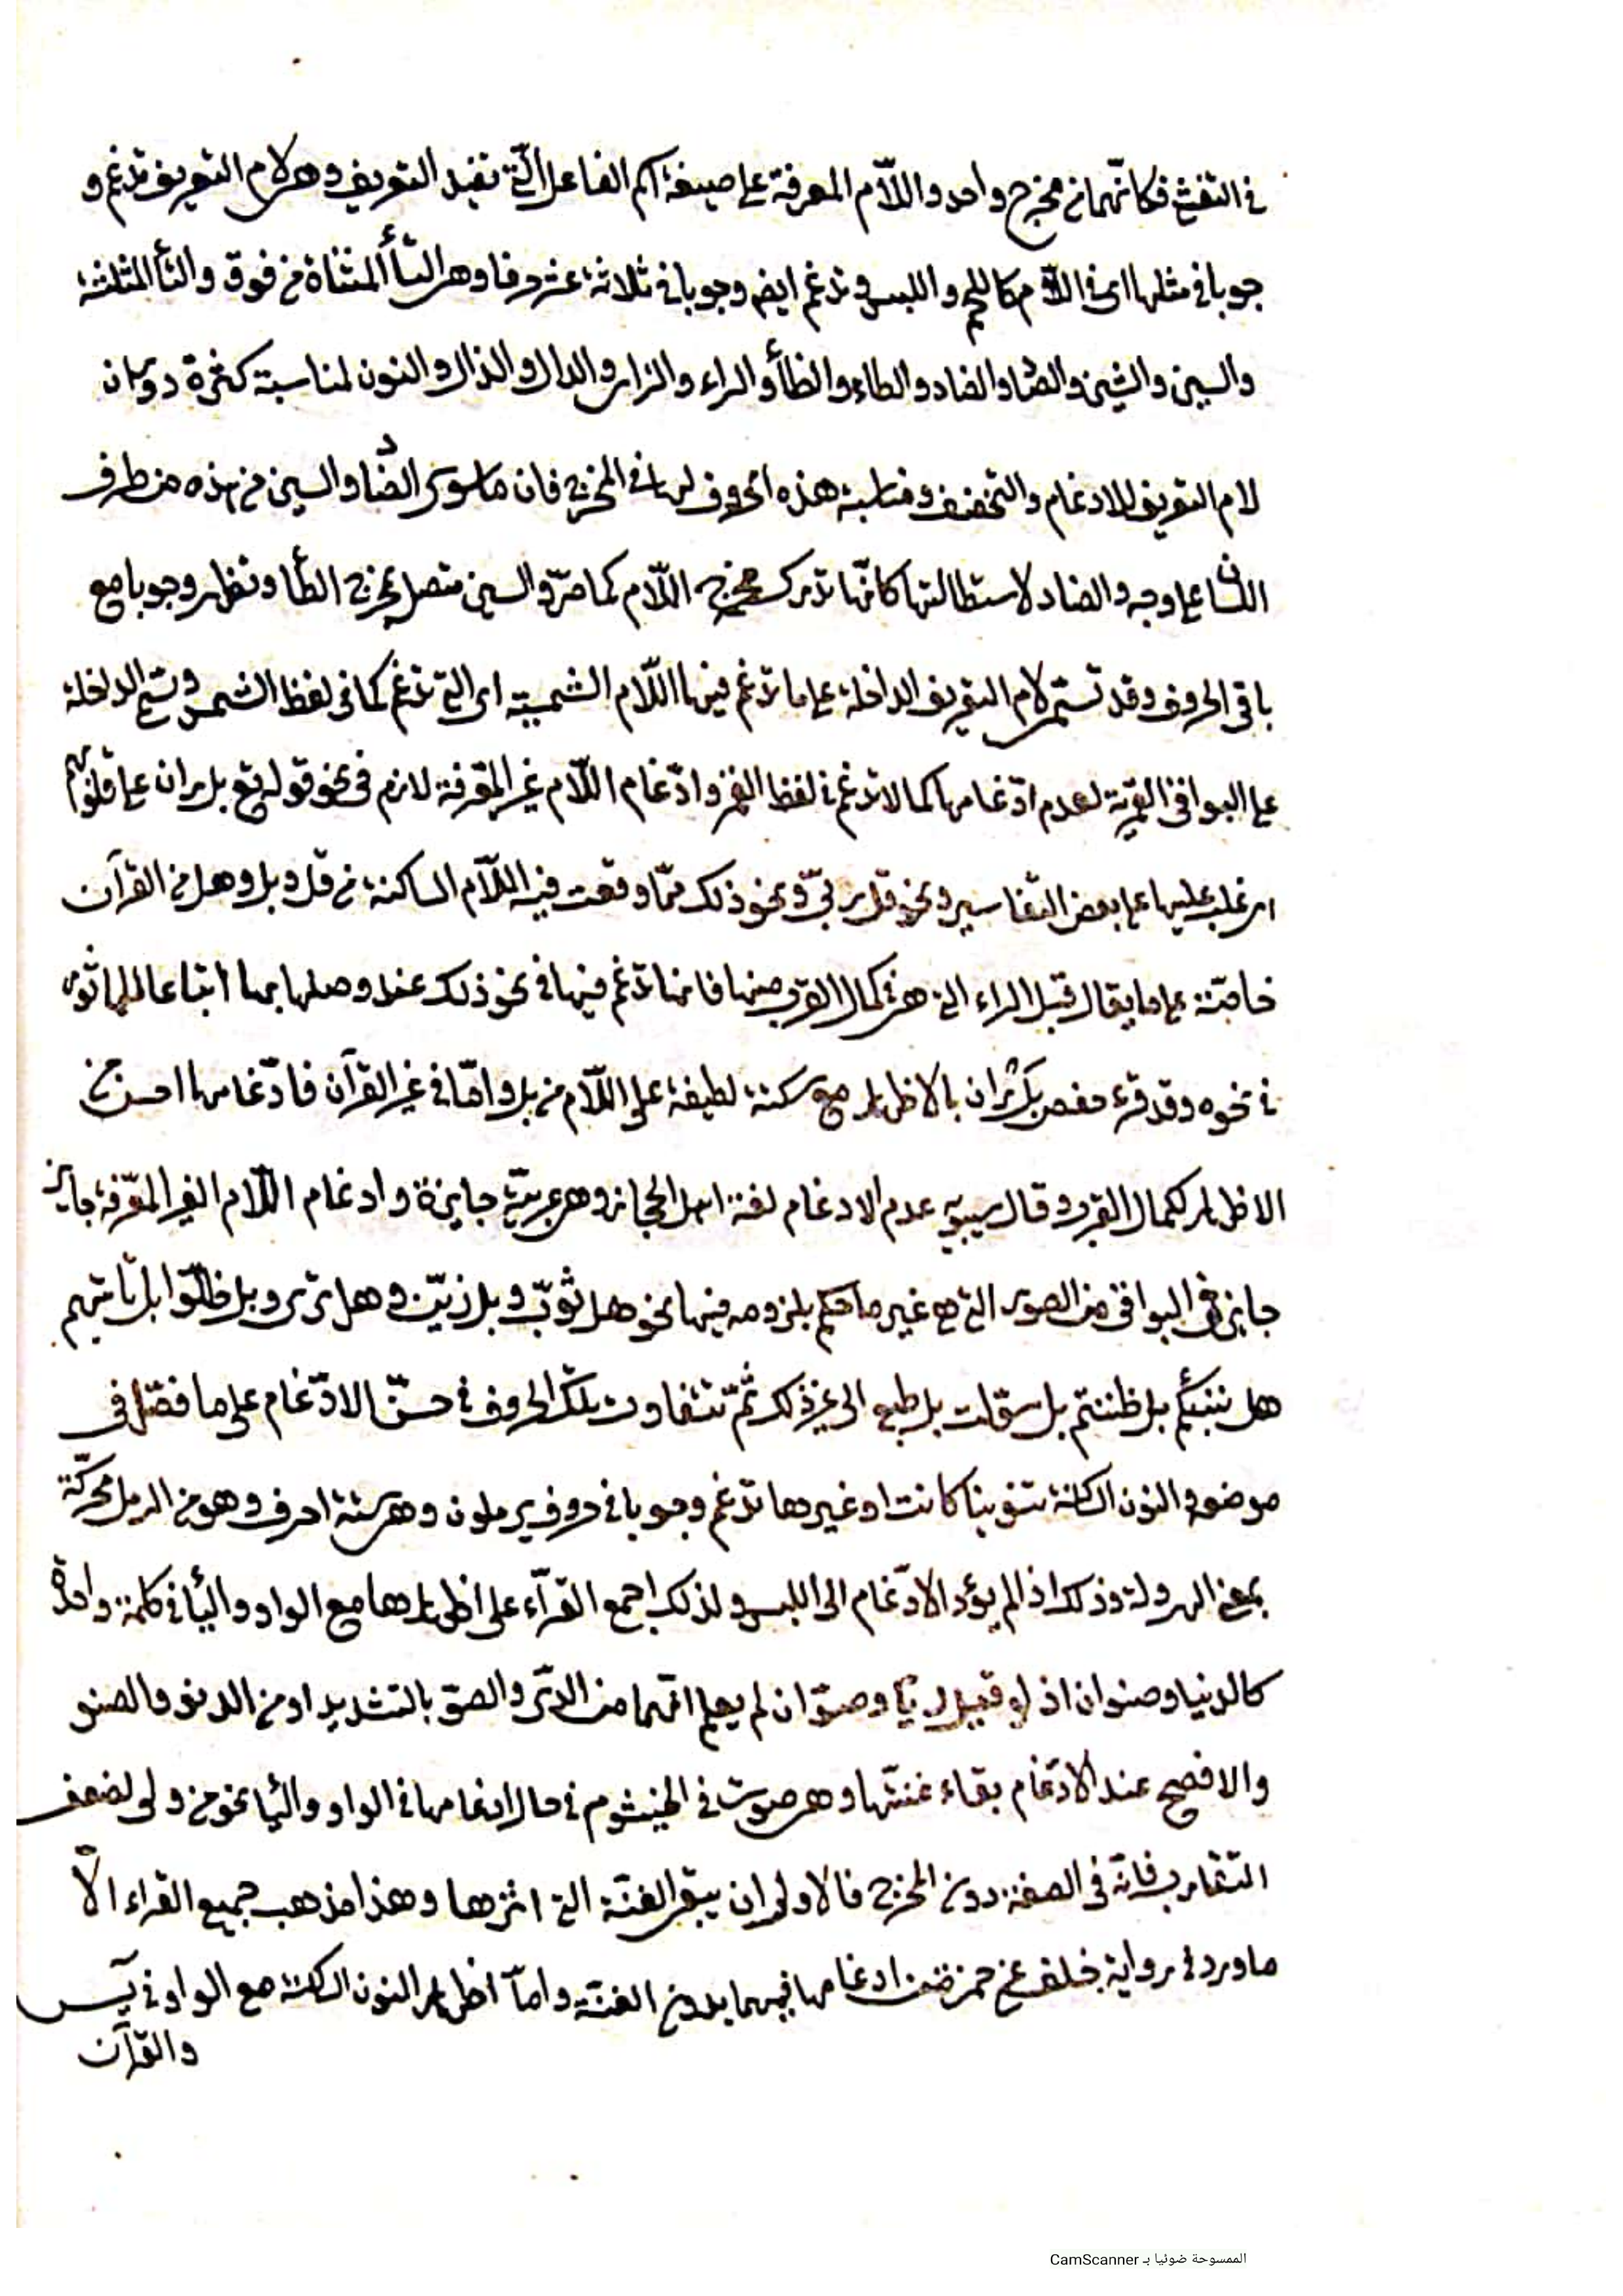 في التفشي فكانهما من مخرج واحد واللّام المعرفة على صيغة اسم الفاعل الّتي تفيد التعريف وهي لام التعريف تدغم و
جوبا في مثلها اي في اللّام كاللحم واللبس وتدغم ايض وجوبا في ثلاثة عشر حرفا وهي التأ المثناة من فوق والثأ المثلثة
والسين والشين والصاد والضاد والطاء والظأ والراء والزاي والدال والذال والنون لمناسبة كثرة دوران
لام التعريف للادغام والتخفيف ومناسبة هذه الحروف لها في المخرج فان ما سوى الضاد والسين من هذه من طرف
اللسان على وجه والضاد لاستطالتها كانّها تدرك مخرج اللّام كما مرّ والسين متصل بمخرج الطأ وتظهر وجوبا مع
باقي الحروف وقد تسمّى لام التعريف الداخلة على ما تدغم فيها اللّام الشمسية اي التي تدغم كما في لفظ الشمس وتسمى الداخلة
على البواقي القمرية لعدم ادّغامها كما لا تدغم في لفظ القمر وادّغام اللّام غير المعّرفة لازم في نحو قوله تع بل ران على قلوبهم
اي غلب عليها على بعض التفاسير ونحو قل ربّي ونحو ذلك ممّا وقعت فيه اللّام الساكنة من قل وبل وهل من القرآن
خاصّة على ما يقال قبل الراء التي هي في كمال القرب منها فانها تدغم فيها في نحو ذلك عند وصلها بها اتباعا للماثور
في نحوه وقد قرء حفص بل ران بالاظهار مع سكتة لطيفة على اللّام من بل وامّا في غير القرآن فادّغامها احسن من
الاظهار لكمال القرب وقال سيبويه عدم الادغام لغة اهل الحجاز وهي عربيّة جايزة وادغام اللّام الغير المعّرفة جايز
جايز في البواقي من الصور التي هي غير ما حكم بلزومه فيها نحو هل ثوّب وبل زيّن وهل ترى وبل ضلّوا بل تاتيهم
هل ننبئكم بل ظننتم بل سوّلت بل طبع الى غير ذلك ثمّ تتفاوت تلك الحروف في حسن الادّغام على ما فصّل في
موضعه والنون الساكنة تنوينا كانت او غيرها تدغم وجوبا في حروف يرملون وهي ستة احرف وهو من الرمل محرّكة
بمعنى الهرولة وذلك اذا لم يؤد الادّغام الى اللبس ولذلك اجمع القرّآء على اظهارها مع الواو واليأ في كلمة واحدة
كالدنيا وصنوان اذ لو قيل ديّا وصوّان لم يعلم انّهما من الديّ والصوّ بالتشديد او من الدنو والصنو
والافصح عند الادّغام بقاء غنتّها وهي صوت في الخيشوم في حال ادغامها في الواو واليأ نحو من ولى لضعف
التقارب فانّه في الصفة دون المخرج فالاولى ان يبقى الغنّة التي اثرها وهذا مذهب جميع القراء الّا
ما ورد في رواية خلف عن حمزة من ادغامها فيهما بدون الغنّة وامّا اظهار النون الساكنة مع الواو في يس
والقرآن
الممسوحة ضوئيا بـ CamScanner